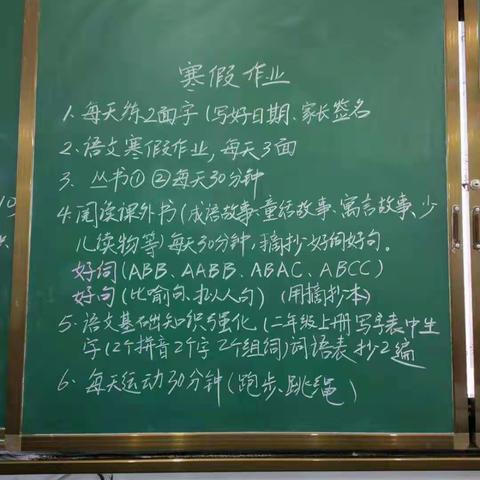 寒假作业
1、每天练2面字(写好日期、家长签名
2、语文寒假作业,每天3面
3、丛书①②每天30分钟
4.阅读课外书(成语故事、童话故事、寓言故事、少
儿读物等)每天30分钟,摘抄好词好句。
好词(ABB、AABB、ABAC、ABCC)
好句(比喻句、拟人句)(用摘抄本)
5、语文基础知识强化(二年级上册写字表中生
字(2个拼音2个字2个组词)词语表抄2遍
6、每天运动30分钟(跑步、跳绳)